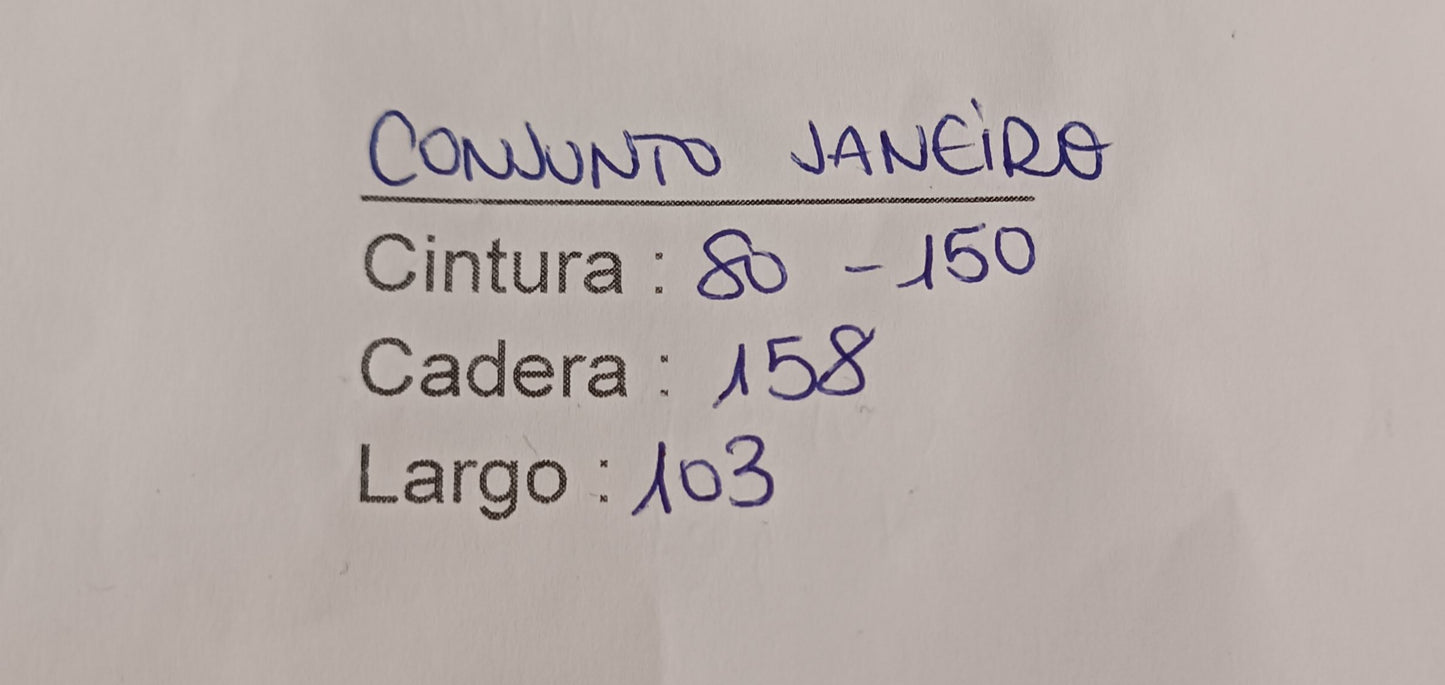 CONJUNTO JANEiRO
Cintura : 80 - 150
Cadera : 158
Largo : 103